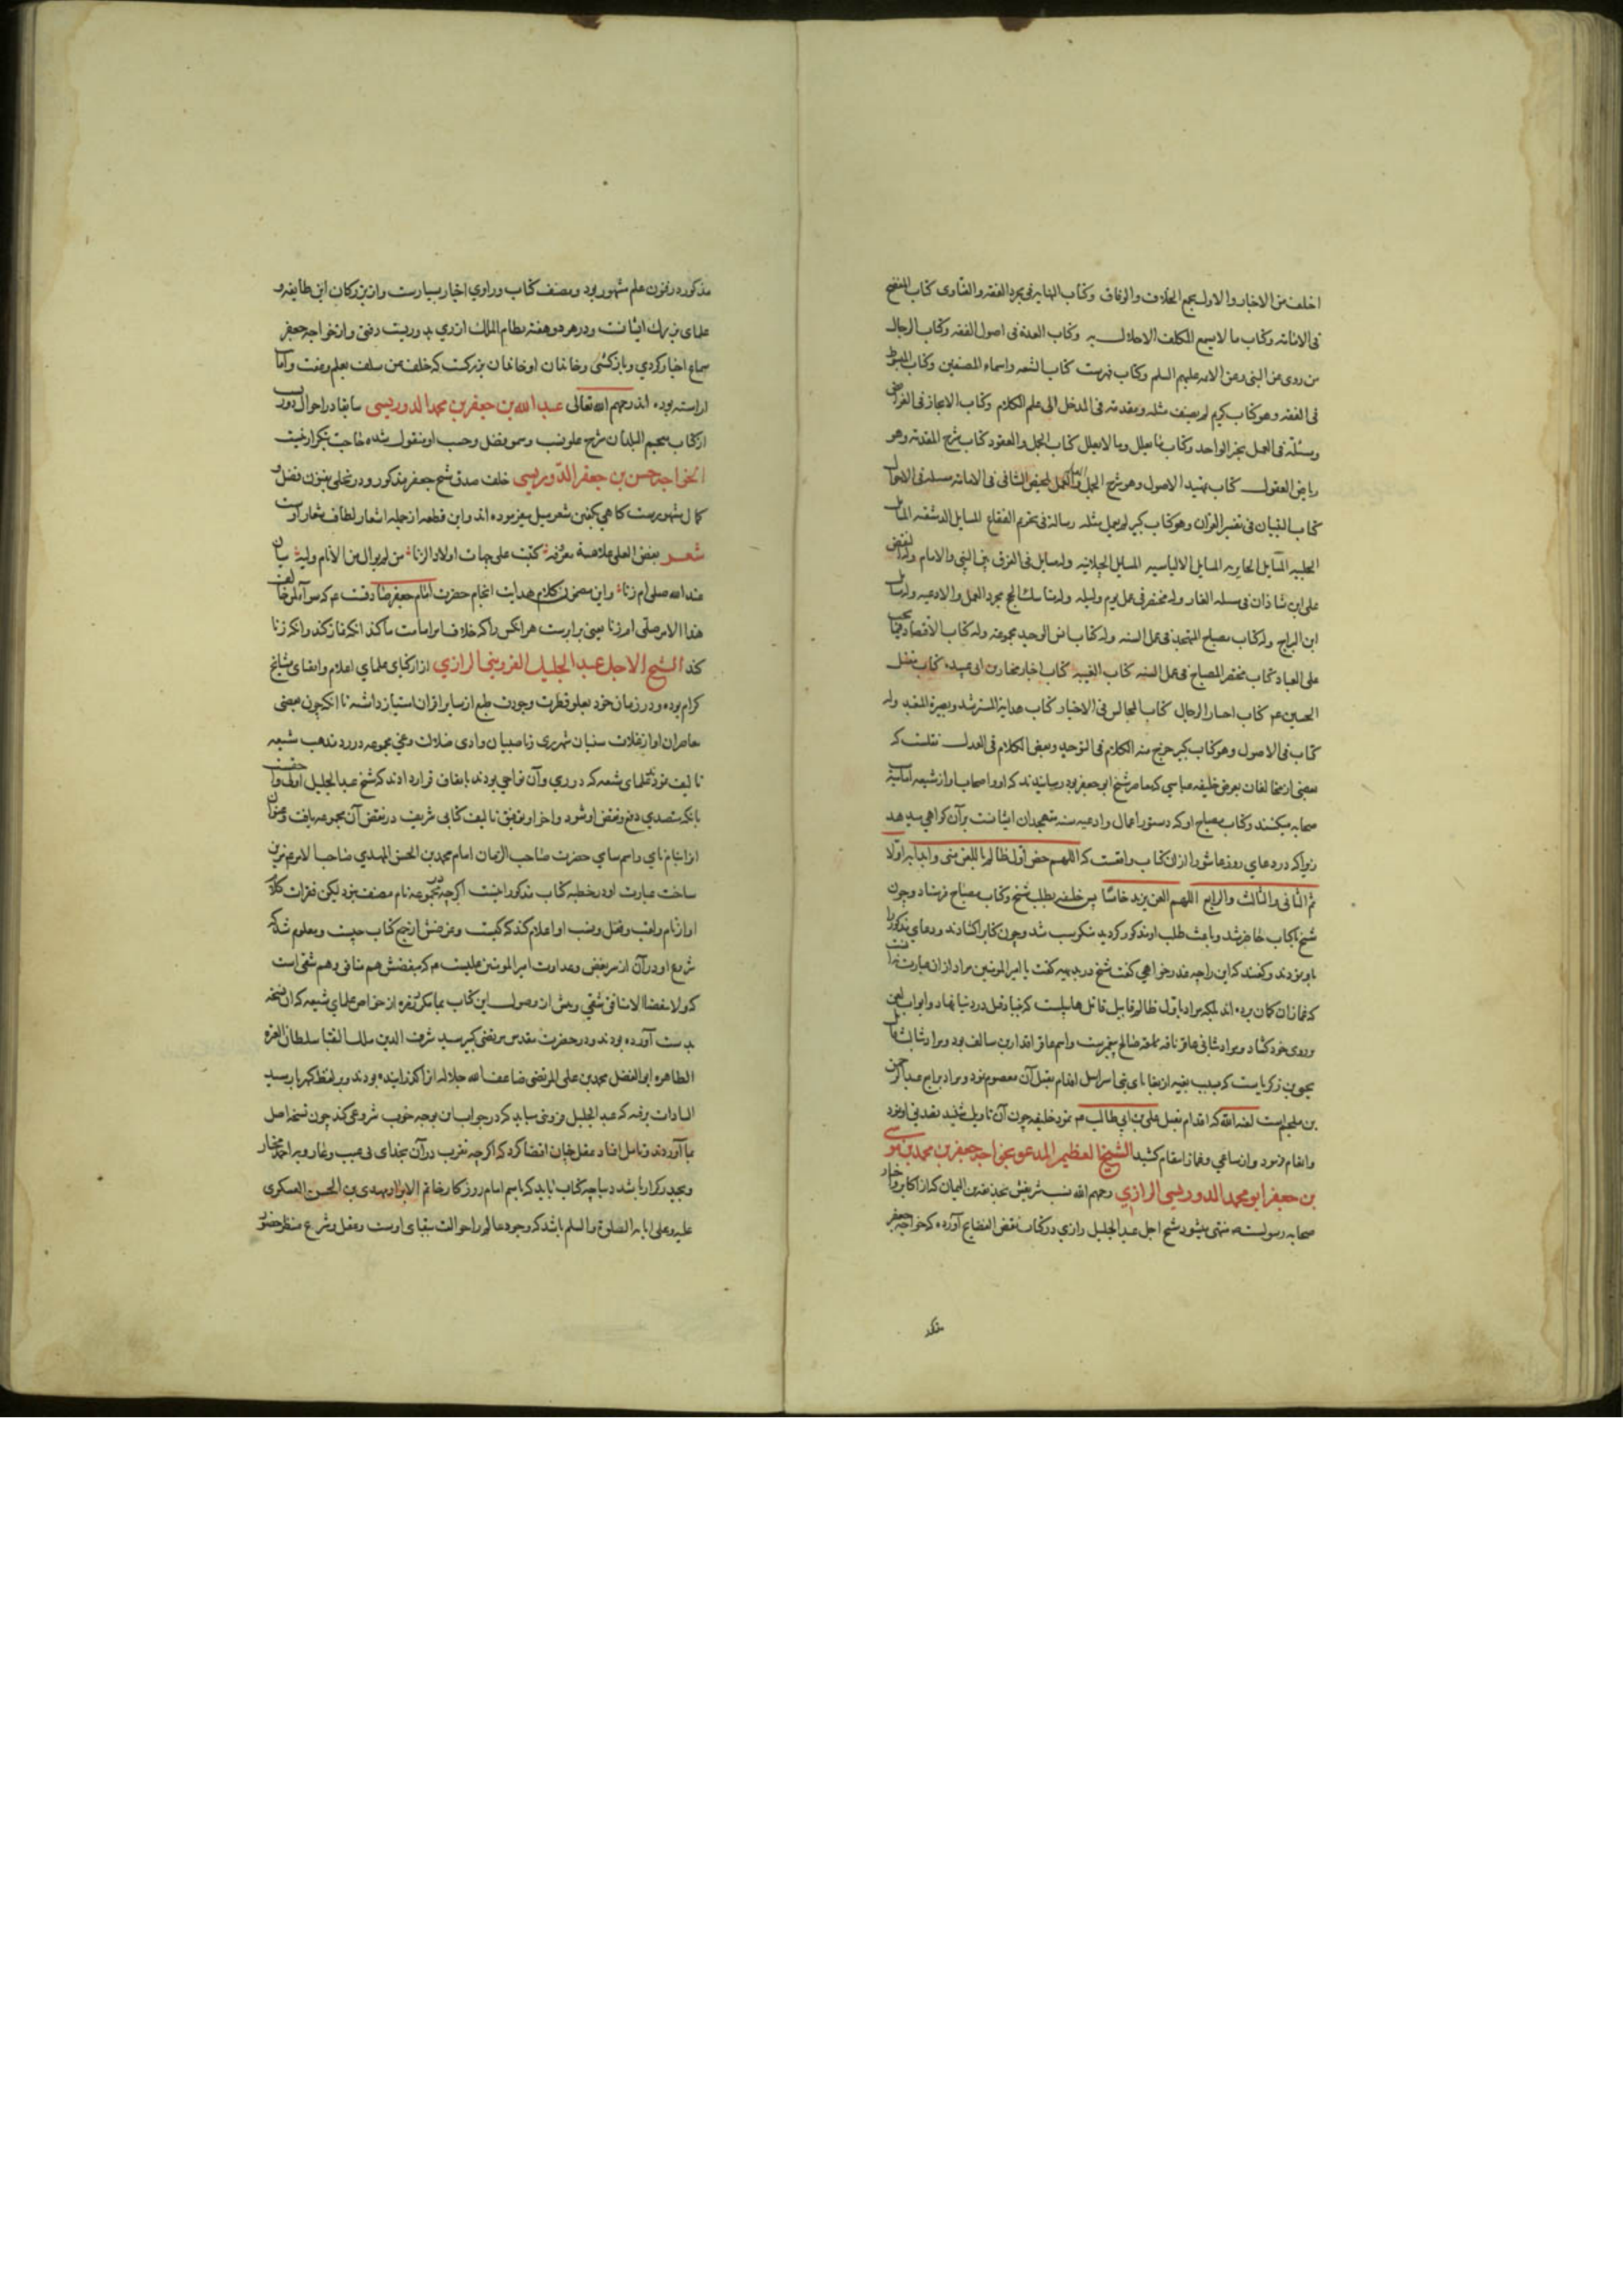 اختلف من الاخبار والاول يجمع الخلاف والوفاق وکتاب النهایه فی مجرد الفقه والفتاوی کتاب المفصح
فی الامامه وکتاب ما لا یسع المکلف الاخلال به وکتاب العده فی اصول الفقه وکتاب الرجال
من روی عن النبی وعن الائمه علیهم السلم وکتاب فهرست کتاب الشیعه واسماء المصنفین وکتاب المبسوط
فی الفقه وهو کتاب کبیر لم یصنف مثله ومقدمه فی المدخل الی علم الکلام وکتاب الایجاز فی الفرائض
ومسئلة فی العمل بخبر الواحد وکتاب ما یعلل وما لا یعلل کتاب الجمل والعقود کتاب شرح المقدمه وهو
ریاض العقول کتاب تمهید الاصول وهو شرح الجمل والعمل تلخیص الشافی فی الامامه مسئله فی الاحوال
کتاب التبیان فی تفسیر القران وهو کتاب کبیر لم یعمل مثله رسالة فی تحریم الفقاع المسایل الدمشقیه المسایل
الحلبیه المسایل الحایریه المسایل الالیاسیه المسایل الجیلانیه وله مسایل فی الفرق بین النبی والامام وله النقض
علی ابن شاذان فی مسئله الغار وله مختصر فی عمل یوم ولیله وله مناسک الحج مجرد العمل والادعیه وله مسایل
ابن البراج وله کتاب مصباح المتهجد فی عمل السنه وله کتاب انس الوحید مجموعه وله کتاب الاقتصاد فیما یجب
علی العباد کتاب مختصر المصباح فی عمل السنه کتاب الغیبه کتاب اخبار مختار بن ابی عبیده کتاب مقتل
الحسین عم کتاب اختیار الرجال کتاب المجالس فی الاخبار کتاب هدایة المسترشد وبصیرة المتعبد وله
کتاب فی الاصول وهو کتاب کبیر خرج منه الکلام فی التوحید وبعض الکلام فی العدل نقلست که
بعضی از مخالفان بعرض خلیفه عباسی که معاصر شیخ ابو جعفر بود رسانیدند که او واصحاب او از شیعه امامیه
صحابه میکنند وکتاب مصباح او که دستور اعمال وادعیه سنه متهجدان ایشانست بر آن کواهی میدهد
زیرا که در دعای روز عاشورا از ان کتاب واقعست که اللهم خص اول ظالم باللعن منی وابدا به اولا
ثم الثانی والثالث والرابع اللهم العن یزید خامسا پس خلیفه بطلب شیخ وکتاب مصباح فرستاد وچون
شیخ با کتاب حاضر شد وباعث طلب او مذکور کردید منکر سب شد وچون کتاب را کشادند ودعای مذکور را
باو نمودند وکفتند که این را چه عذر خواهی کفت شیخ در بدیهه کفت یا امیر المومنین مراد از ان عبارت نه آنست
که غمازان کمان برده اند بلکه مراد باول ظالم قابیل قاتل هابیلست که بنیاد قتل در دنیا نهاد وابواب لعن
بر روی خود کشاد ومراد بثانی عاقر ناقه صالح پیغمبرست واسم عاقر قدار بن سالف بود ومراد بثالث قاتل
یحیی بن زکریاست که بسبب بغیه از بغایای بنی اسراییل اقدام بقتل آن معصوم نمود ومراد برابع عبد الرحمن
بن ملجم است لعنه الله که اقدام بقتل علی بن ابی طالب عم نمود خلیفه چون آن تاویل شنید تصدیق او نمود
وانعام فرمود واز ساعی وغماز انتقام کشید الشیخ العظیم المدعو بخواجه جعفر بن محمد بن موسی
بن جعفر ابو محمد الدوریسی الرازی رحمهم الله نسب شریفش بحذیفه بن الیمان که از اکابر واخیار
صحابه رسولست منتهی میشود شیخ اجل عبد الجلیل رازی در کتاب نقض الفضایح آورده که خواجه جعفر
مذکور
مذکور در فنون علم مشهور بود ومصنف کتاب وراوی اخبار بسیارست واز بزرکان این طایفه و
علمای بزرک ایشانست ودر هر دو هفته نظام الملک از ری بدوریست رفتی واز خواجه جعفر
سماع اخبار کردی وباز کشتی وخاندان او خاندان بزرکست که خلف عن سلف بعلم وعفت وامانت
اراسته بوده اند رحمهم الله تعالی عبد الله بن جعفر بن محمد الدوریسی سابقا در احوال دوریست
از کتاب معجم البلدان شرح علو نسب وسمو فضل وحسب او منقول شده حاجت بتکرار نیست
الخواجه حسن بن جعفر الدوریسی خلف صدق شیخ جعفر مذکور ودر تحلی بفنون فضل و
کمال مشهورست کاهی بکفتن شعر میل میفرموده اند واین قطعه از جمله اشعار لطافت شعار اوست
شعر بغض العلی علامة معروفة کتبت علی جبهات اولاد الزنا من لم یوال من الانام ولیه سیان
عند الله صلی ام زنا واین مضمون کلام هدایت انجام حضرت امام جعفر صادقست عم که سواء لمن خالف
هذا الامر صلی ام زنا یعنی برابرست هر انکس را که خلاف امر امامت ما کند انکه نماز کند وانکه زنا
کند الشیخ الاجل عبد الجلیل القزوینی الرازی از اذکیای علمای اعلام واتقیای مشایخ
کرام بوده ودر زمان خود بعلو فطرت وجودت طبع از سایر اقران امتیاز داشته تا انکه چون بعضی
معاصران او از غلات سنیان شهر ری وناصبیان وادی ضلالت وغی مجموعه در رد مذهب شیعه
تالیف نمود علمای شیعه که در ری وآن نواحی بودند باتفاق قرار دادند که شیخ عبد الجلیل اولی واحق است
بانکه متصدی دفع ونقض او شود واخر او بتوفیق تالیف کتابی شریف در نقض آن مجموعه یافت وعنوان
از انام نامی واسم سامی حضرت صاحب الزمان امام محمد بن الحسن المهدی صاحب الامر مزین
ساخت عبارت او در خطبه کتاب مذکور اینست اکرچه در مجموعه نام مصنف نبود لیکن فقرات کلام
او از نام ولقب وفضل ونسب او اعلام کند که کیست وغرضش از جمع کتاب چیست ومعلوم شد که
شروع او در آن از سر بغض وعداوت امیر المومنین علیست عم که مبغضش هم منافق وهم شقی است
که لا یبغضک الا منافق شقی وپیش از وصول این کتاب بما مکر نفره از خواص علمای شیعه که ان نسخه
بدست آورده بودند ودر حضرت مقدس مرتضی کبیر سید شرف الدین ملک النقبا سلطان العتره
الطاهره ابو الفضل محمد بن علی المرتضی ضاعف الله جلاله از آن کذرانیده بودند وبر لفظ کهربار سید
السادات برفته که عبد الجلیل قزوینی میباید که در جواب این بوجه خوب شروعی کند چون نسخه اصل
بما آوردند وتامل افتاد عقل چنان اقتضا کرد که اکرچه تقرب در آن بخدای بی عیب وعار وبه احمد مختار
وبحیدر کرار باشد دیباچه کتاب باید که باسم امام روزکار خاتم الابرار مهدی بن الحسن العسکری
علیه وعلی ابایه الصلوة والسلم باشد که وجود عالم را حوالت ببقای اوست وعقل وشرع منتظر حضور